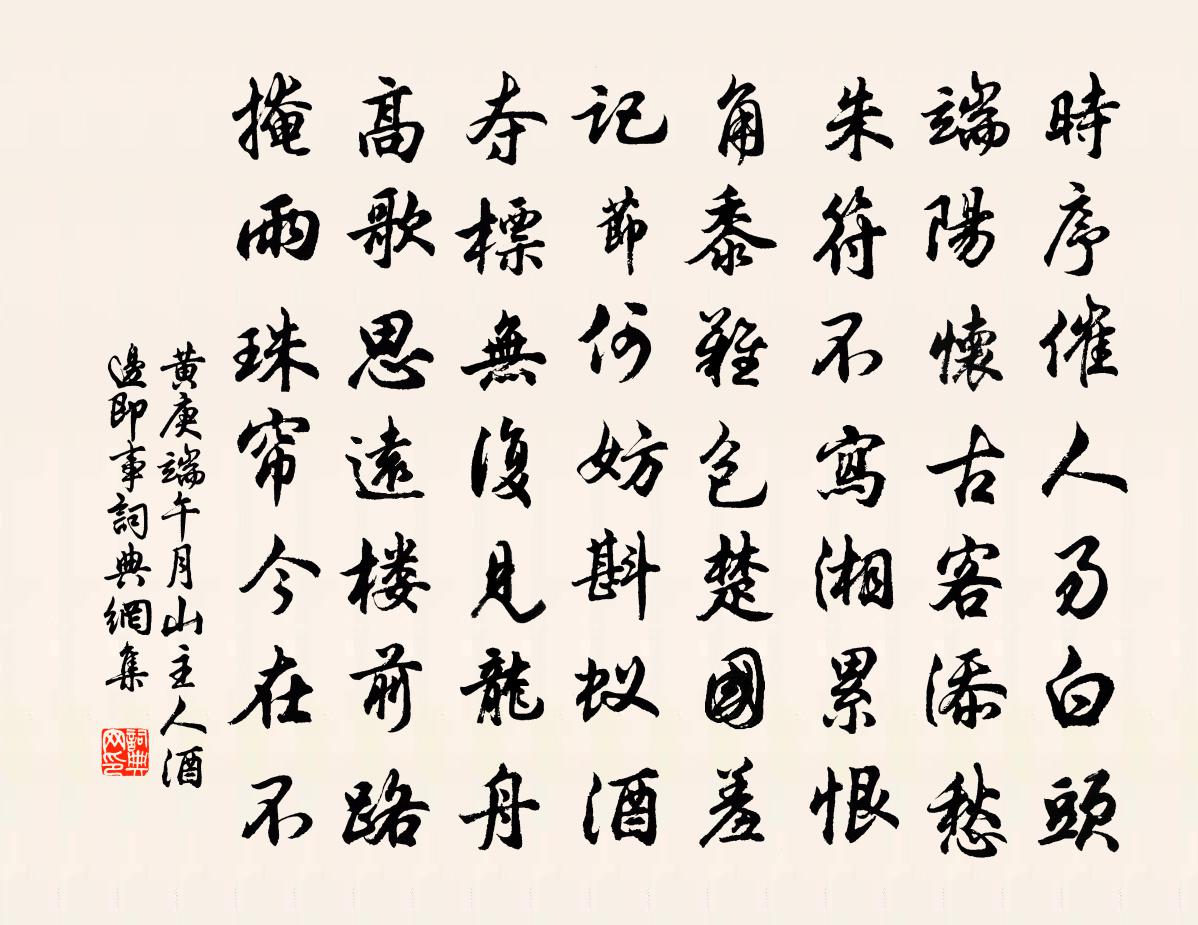 時序催人易白頭
端陽懷古客添愁
朱符不寫湘累恨
角黍難包楚國羞
記節何妨斟蚁酒
夺標無復見龍舟
高歌思遠楼前路
掩雨珠帘今在不
黄庚端午月山主人酒
邊即事詞典網集
詞典
网印